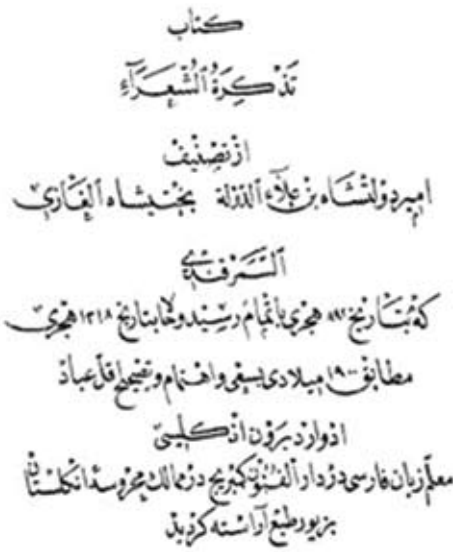 كتاب
تَذْكِرَةُ ٱلشُّعَرَآءِ
از تصنيف
امير دولتشاه بن علاء الدّولة بختيشاه الغازى
السّمرقندى
كه بتاريخ ۸۹۲ هجرى باتمام رسيد و حالا بتاريخ ۱۳۱۸ هجرى
مطابق ۱۹۰۰ ميلادى بسعى و اهتمام و تصحيح اقلّ عباد
ادوارد برون انكليسى
معلّم زبان فارسى در دار الفنون كمبريج در ممالك محروسهٔ انكلستان
بزيور طبع آراسته كرديد